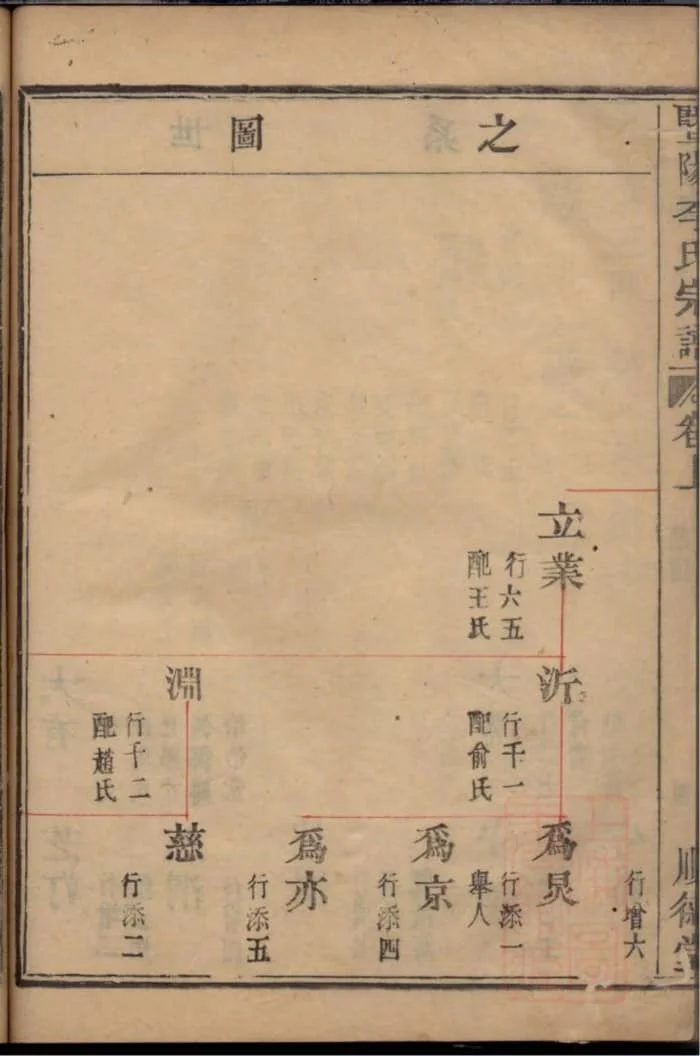 暨陽李氏宗譜
卷上
順德堂
之圖
行增六
立業
行六五
配王氏
沂
行千一
配俞氏
淵
行千二
配趙氏
爲炅
行添一
舉人
爲京
行添四
爲亦
行添五
慈
行添二